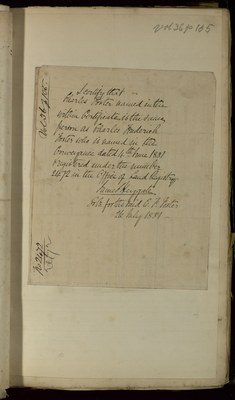 vol 36 p 105
Vol 36 p 105
I certify that
Charles Foster named in the
within Certificate is the same
person as Charles Frederick
Foster who is named in the
Conveyance dated 4th June 1891
registered under the number
2472 in the Office of Land Registry
Solr for the said C. F. Foster
26 July 1891